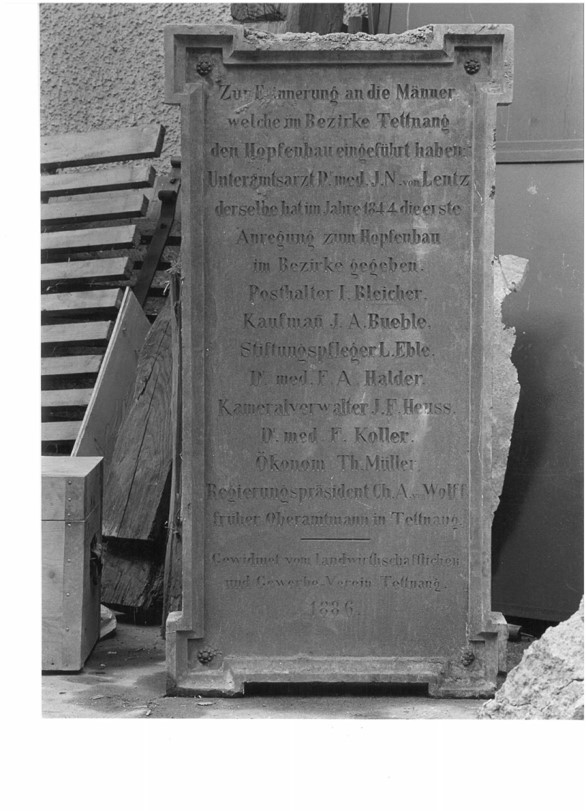 Zur Erinnerung an die Männer
welche im Bezirke Tettnang
den Hopfenbau eingeführt haben:
Unteramtsarzt Dr. med. J.N. von Lentz
derselbe hat im Jahre 1844 die erste
Anregung zum Hopfenbau
im Bezirke gegeben.
Posthalter I. Bleicher.
Kaufman̄ J. A. Bueble.
Stiftungspfleger L. Eble.
Dr. med. F. A. Halder.
Kameralverwalter J.F. Heuss.
Dr. med. F. Koller.
Ökonom Th. Müller.
Regierungspräsident Ch. A. v. Wolff
früher Oberamtmann in Tettnang.
Gewidmet vom landwirthschaftlichen
und Gewerbe-Verein Tettnang.
1886.